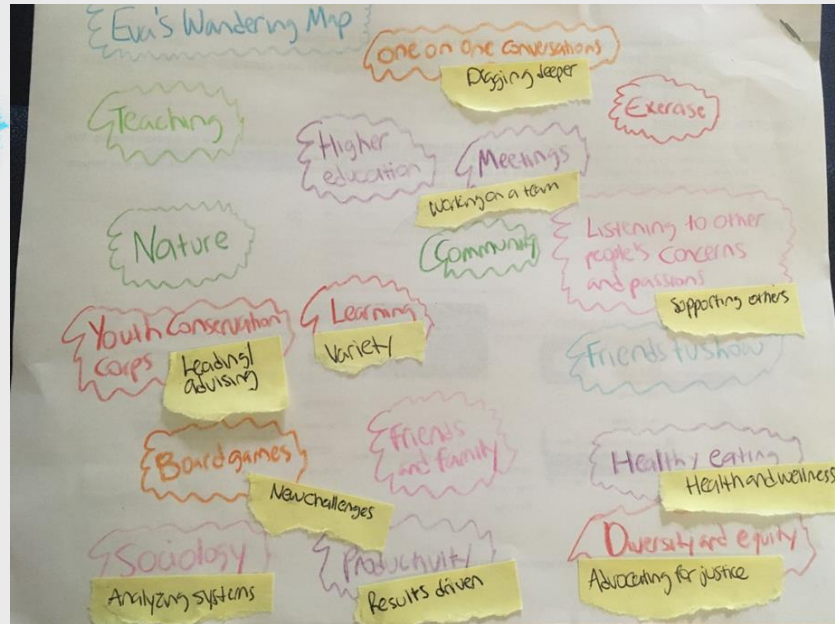 Eva's Wandering Map
one on one conversations
Digging deeper
Exercise
Teaching
Higher
education
Meetings
Working on a team
Nature
Community
Listening to other
people's concerns
and passions
Supporting others
Youth Conservation
Corps
Leading/
advising
Learning
Variety
Friends tv show
Board games
New challenges
Friends
and family
Healthy eating
Health and wellness
Sociology
Analyzing systems
Productivity
Results driven
Diversity and equity
Advocating for justice